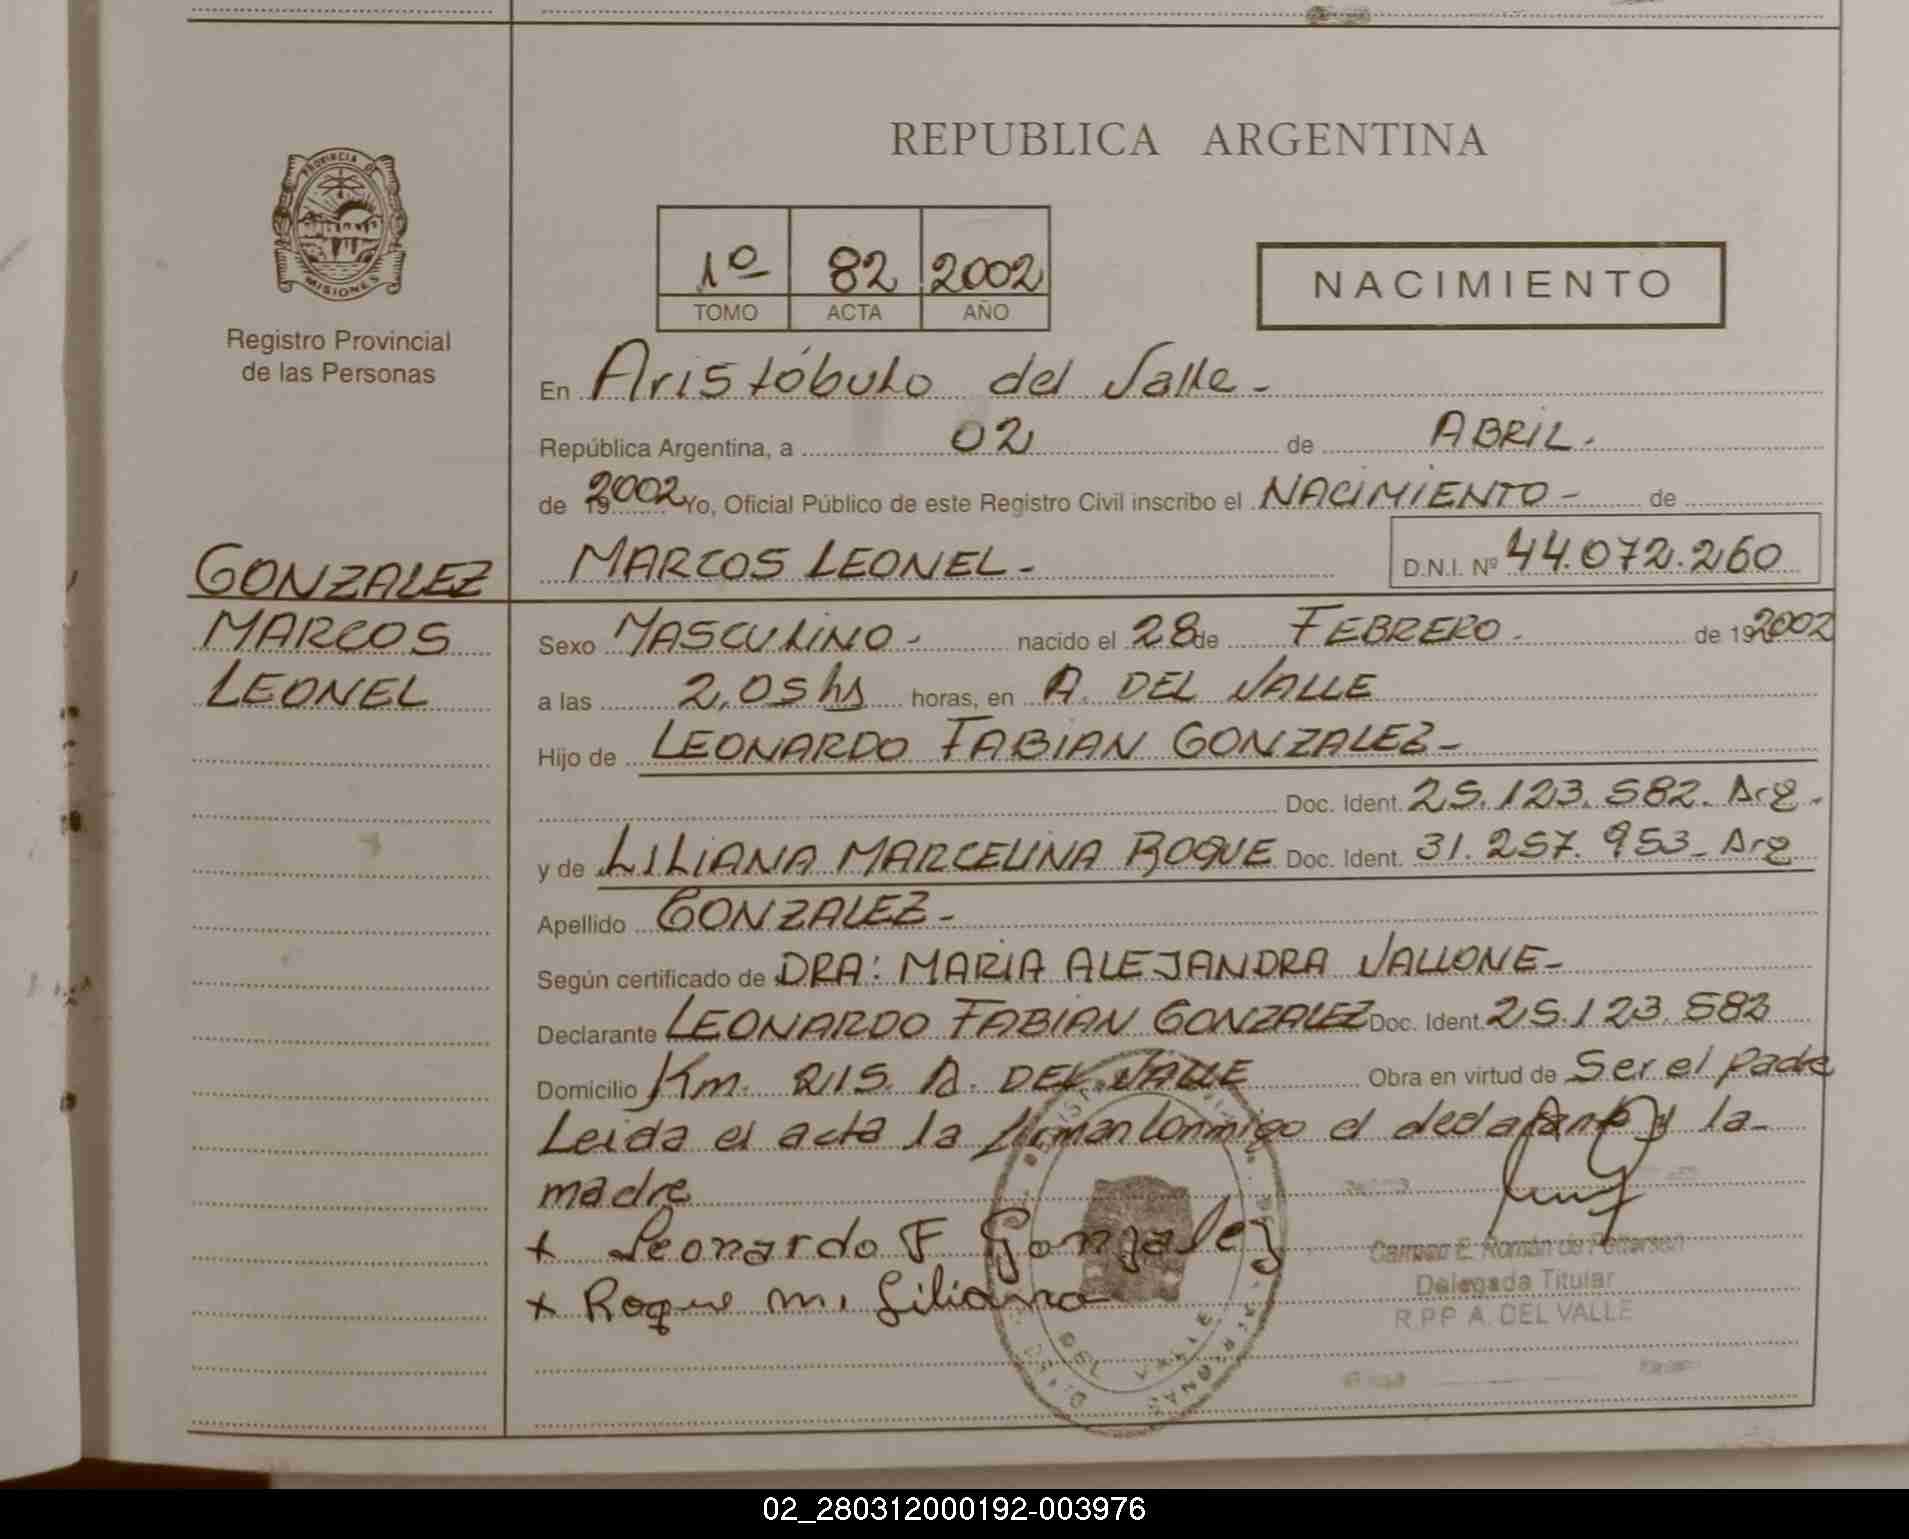 REPUBLICA ARGENTINA
PROVINCIA DE
MISIONES
Registro Provincial
de las Personas
1º 82 2002
TOMO ACTA AÑO
NACIMIENTO
En Aristóbulo del Valle-
República Argentina, a 02 de ABRIL.
de 19 2002 Yo, Oficial Público de este Registro Civil inscribo el NACIMIENTO - de
GONZALEZ
MARCOS
LEONEL
MARCOS LEONEL - D.N.I. Nº 44.072.260
Sexo MASCULINO - nacido el 28 de FEBRERO - de 19 2002
a las 2,05 hs horas, en A. DEL VALLE
Hijo de LEONARDO FABIAN GONZALEZ -
Doc. Ident. 25.123.582. Arg.
y de LILIANA MARCELINA ROQUE Doc. Ident. 31.257.953 - Arg
Apellido GONZALEZ -
Según certificado de DRA: MARIA ALEJANDRA VALLONE -
Declarante LEONARDO FABIAN GONZALEZ Doc. Ident. 25.123.582
Domicilio Km. 215. A. DEL VALLE Obra en virtud de Ser el padre
Leida el acta la firman conmigo el declarante y la -
madre
+ Leonardo F Gonzalez
+ Roque m. Liliana
DEL VALLE
Carmen E. Román de
Delegada Titular
R.P.P A. DEL VALLE
02_280312000192-003976